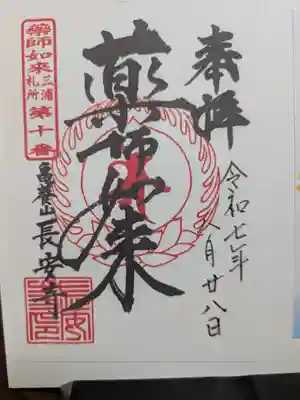 奉拝
令和七年
月廿八日
薬師如来
藥師如來
三浦
札所
第十番
長安寺